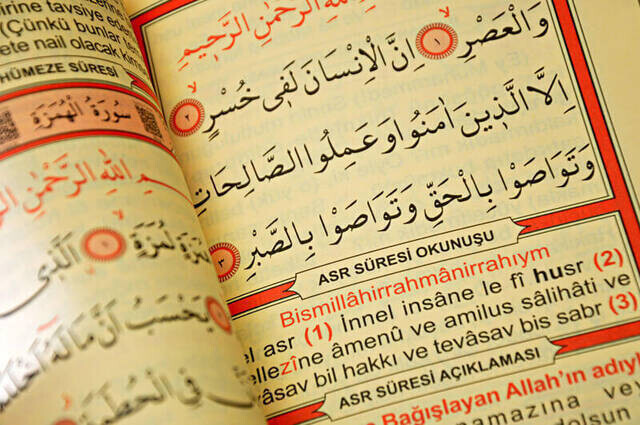 irine tavsiye ede
(Çünkü bunlar
ete nail olacak kim
HÜMEZE SÛRESİ
سُورَةُ الْهُمَزَةِ
اللهِ الرَّحْمٰنِ
لُمَزَةٍ ١ اَلَّذِى
يَحْسَبُ اَنَّ مَالَهُٓ
فِى الْحُطَمَةِ
اللهِ الرَّحْمٰنِ الرَّحِيمِ
وَالْعَصْرِ ١ اِنَّ الْاِنْسَانَ لَفِى خُسْرٍ ٢
اِلَّا الَّذِينَ اٰمَنُوا وَعَمِلُوا الصَّالِحَاتِ
وَتَوَاصَوْا بِالْحَقِّ وَتَوَاصَوْا بِالصَّبْرِ ٣
ASR SÛRESİ OKUNUŞU
Bismillâhirrahmânirrahıym
el asr (1) İnnel insâne le fî husr (2)
ellezîne âmenû ve amilus sâlihâti ve
vâsav bil hakkı ve tevâsav bis sabr (3)
ASR SÛRESİ AÇIKLAMASI
Bağışlayan Allah'ın adıy
namazına ve